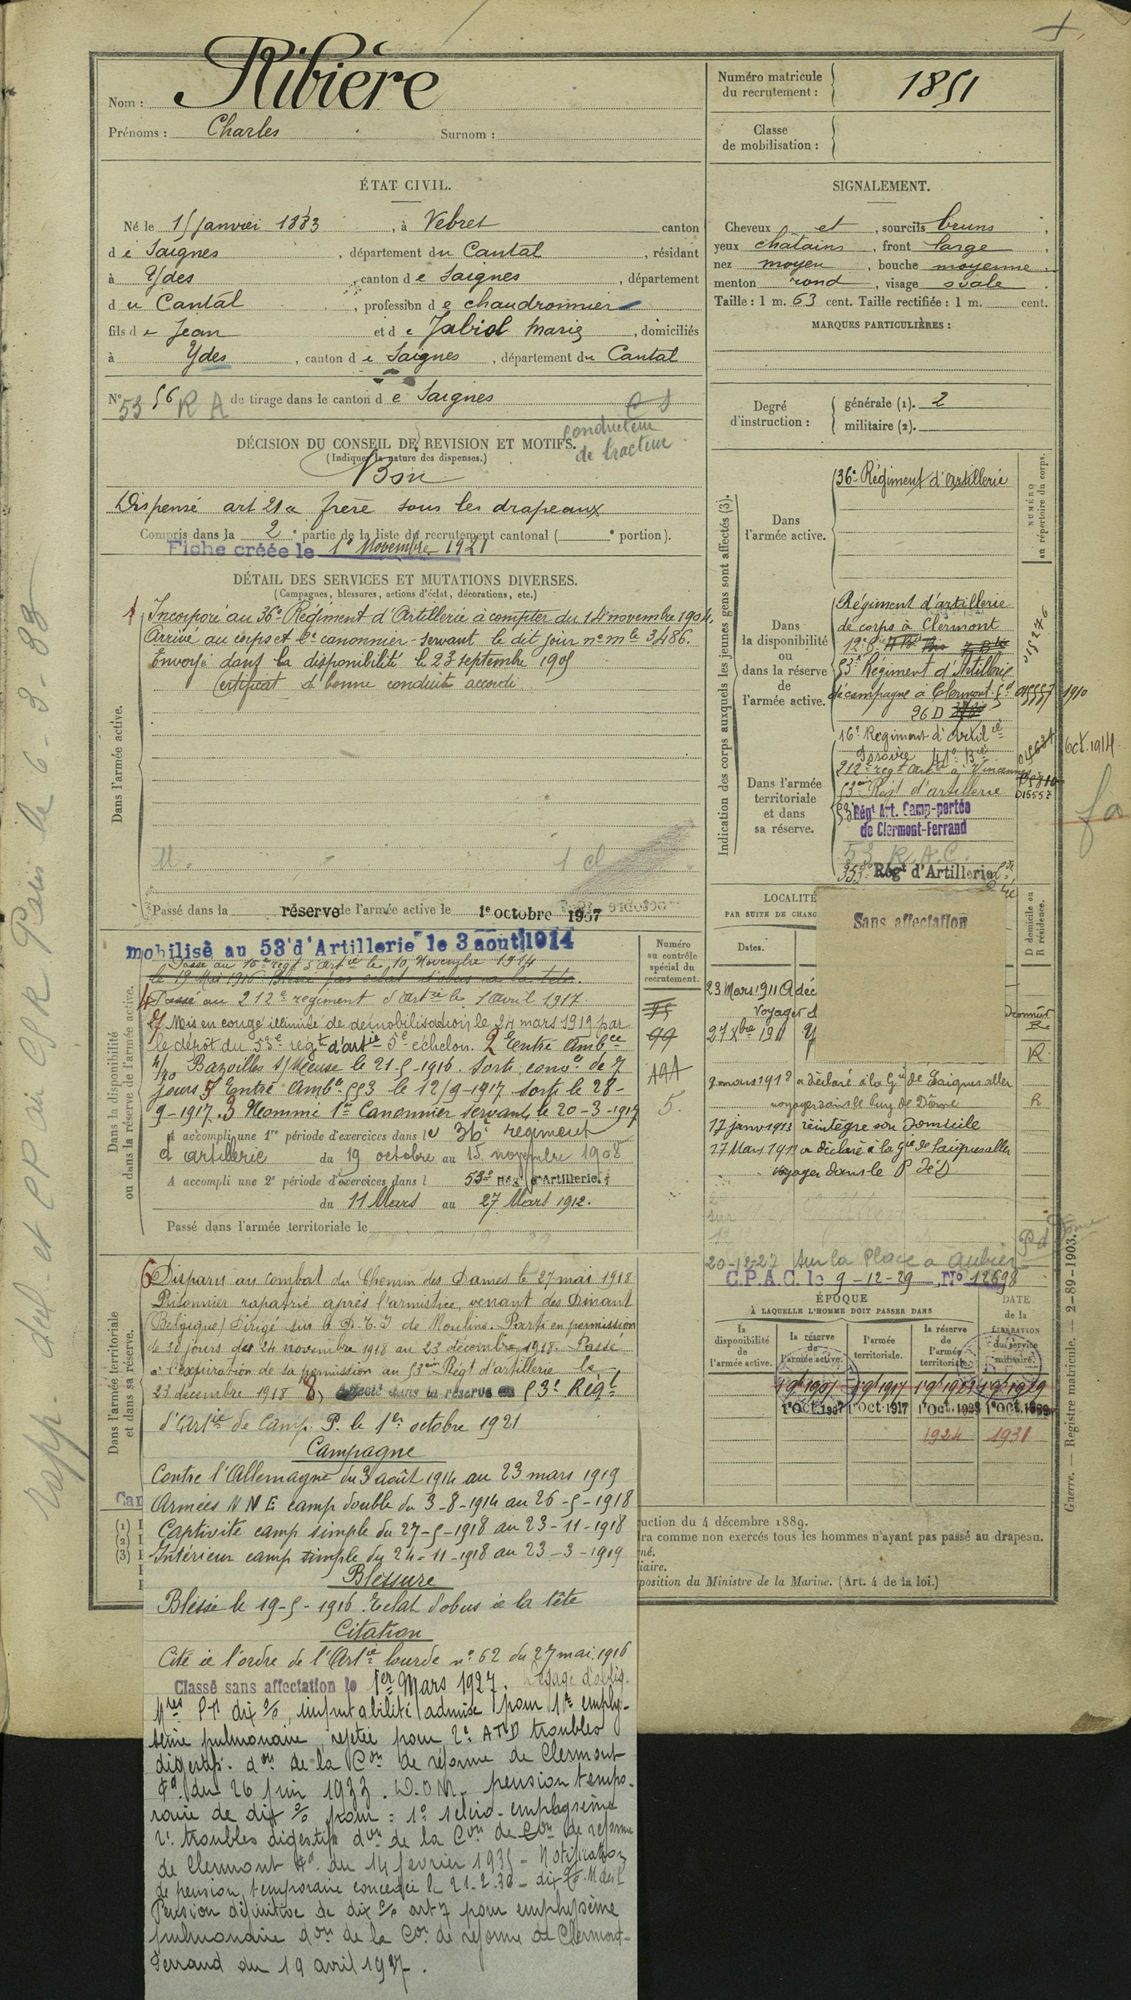 Nom : Ribière
Prénoms : Charles Surnom :
Numéro matricule
du recrutement : 1851
Classe
de mobilisation :
ÉTAT CIVIL.
Né le 15 janvier 1883, à Vebret canton
de Saignes, département du Cantal, résidant
à Ydes, canton de Saignes, département
du Cantal, profession de chaudronnier
fils de Jean et de Jabiol Marie, domiciliés
à Ydes, canton de Saignes, département du Cantal
N° 56 de tirage dans le canton de Saignes
53 R A
conducteur
de tracteur
SIGNALEMENT.
Cheveux et, sourcils bruns,
yeux châtains, front large,
nez moyen, bouche moyenne,
menton rond, visage ovale.
Taille : 1 m. 63 cent. Taille rectifiée : 1 m. cent.
MARQUES PARTICULIÈRES :
Degré
d'instruction :
générale (1). 2
militaire (2).
DÉCISION DU CONSEIL DE REVISION ET MOTIFS.
(Indiquer la nature des dispenses.)
Bon
Dispensé art 21 frère sous les drapeaux
Compris dans la 2e partie de la liste du recrutement cantonal ( e portion).
Fiche créée le 1er Novembre 1921
DÉTAIL DES SERVICES ET MUTATIONS DIVERSES.
(Campagnes, blessures, actions d'éclat, décorations, etc.)
Dans l'armée active.
Incorporé au 36e Régiment d'Artillerie à compter du 14 novembre 1904.
Arrivé au corps et 2e canonnier-servant le dit jour n° mle 3486.
Envoyé dans la disponibilité le 23 septembre 1905
Certificat de bonne conduite accordé
1 cl
Passé dans la réserve de l'armée active le 1er octobre 1907
Indication des corps auxquels les jeunes gens sont affectés (3).
NUMÉRO
au répertoire du corps.
Dans
l'armée active.
36e Régiment d'Artillerie
Dans
la disponibilité
ou
dans la réserve
de
l'armée active.
Régiment d'artillerie
de corps à Clermont
53e Régiment d'Artillerie
de campagne à Clermont-Fd
26 D
1910
Dans l'armée
territoriale
et dans
sa réserve.
16e Régiment d'Artil ie
212e reg t Art ie à Vincennes
53ème Rég t d'artillerie 015557
oct. 1914
53e Rég t Art. Camp-portée
de Clermont-Ferrand
53 R.A.C.
353e Rég t d'Artillerie
Dans la disponibilité
ou dans la réserve de l'armée active.
mobilisé au 53e d'Artillerie le 3 août 1914
Passé au 16e reg t d'art ie le 10 Novembre 1914
le 19 Mai 1916 Blessé par éclat d'obus à la tête.
Passé au 212e régiment d'art ie le 1 avril 1917.
Mis en congé illimité de démobilisation le 24 mars 1919 par
le dépôt du 53e rég t d'art ie 5e échelon. 2 Entré Amb ce
4/20 Bazoilles s/Meuse le 21-5-1916. Sorti, conv ce de 7
jours 5 Entré Amb ce 553 le 12/9-1917 sorti le 28-
9-1917. 3 Nommé 1er Canonnier servant le 20-3-1917
A accompli une 1re période d'exercices dans le 36e régiment
d'artillerie du 19 octobre au 15 novembre 1908
A accompli une 2e période d'exercices dans l 53e Reg t d'Artillerie
du 11 Mars au 27 Mars 1912.
Passé dans l'armée territoriale le
Numéro
au contrôle
spécial du
recrutement.
99
5.
LOCALITÉ
PAR SUITE DE CHANG
D domicile ou
R résidence.
Dates.
Sans affectation
23 Mars 1911 A déc
Voyager d
27 Xbre 1911
R
2 mars 1912 a déclaré à la G ie de Saignes aller
voyager dans le Puy de Dôme R
17 janv 1913 réintègre son Domicile
27 Mars 1911 a déclaré à la G ie de Saignes aller
voyager dans le P. de D
20-12-27 Sur la Place à Aubière P d Dôme
C.P.A.C. le 9-12-29 N° 12698
ÉPOQUE
À LAQUELLE L'HOMME DOIT PASSER DANS
DATE
de la
LIBÉRATION
du service
militaire.
la
disponibilité
de
l'armée active.
la réserve
de
l'armée active.
l'armée
territoriale.
la réserve
de
l'armée
territoriale.
1er oct. 1907 1er oct. 1917 1er oct. 1923 1er oct. 1929
1924 1931
Dans l'armée territoriale
et dans sa réserve.
6 Disparu au combat du Chemin des Dames le 27 mai 1918
Prisonnier rapatrié après l'armistice, venant des Dinant
(Belgique) Dirigé sur le D.T.I de Moulins. Parti en permission
de 30 jours du 24 novembre 1918 au 23 décembre 1918. Passé
à l'expiration de sa permission au 53ème Rég t d'artillerie le
23 décembre 1918 8) Passé dans la réserve au 53e Rég t
d'Art ie de Camp. P. le 1er octobre 1921
Campagne
Contre l'Allemagne du 3 août 1914 au 23 mars 1919
Armées N NE camp double du 3-8-1914 au 26-5-1918
Captivité camp simple du 27-5-1918 au 23-11-1918
Intérieur camp simple du 24-11-1918 au 23-3-1919
Blessure
Blessé le 19-5-1916 Eclat d'obus à la tête
Citation
Cité à l'ordre de l'Art ie lourde n° 62 du 27 mai 1916
Classé sans affectation le 1er Mars 1927.
PP dix %, imputabilité admise pour 1° emphy-
sème pulmonaire, rejetée pour 2° troubles
digestifs. d on de la C on de réforme de Clermont
Fd du 26 juin 1933. pension tempo-
raire de dix % pour : 1° scléro-emphysème
2° troubles digestifs d on de la C on de réforme
de Clermont Fd du 14 février 1935 - Notification
de pension temporaire concédée le 21-2-36 - dix %
Pension définitive de dix % art 7 pour emphysème
pulmonaire d on de la C on de réforme de Clermont-
Ferrand du 19 avril 1937.
(1)
(2)
(3)
uction du 4 décembre 1889.
dra comme non exercés tous les hommes n'ayant pas passé au drapeau.
né.
liaire.
position du Ministre de la Marine. (Art. 4 de la loi.)
Guerre. — Registre matricule. — 2-89-1903.